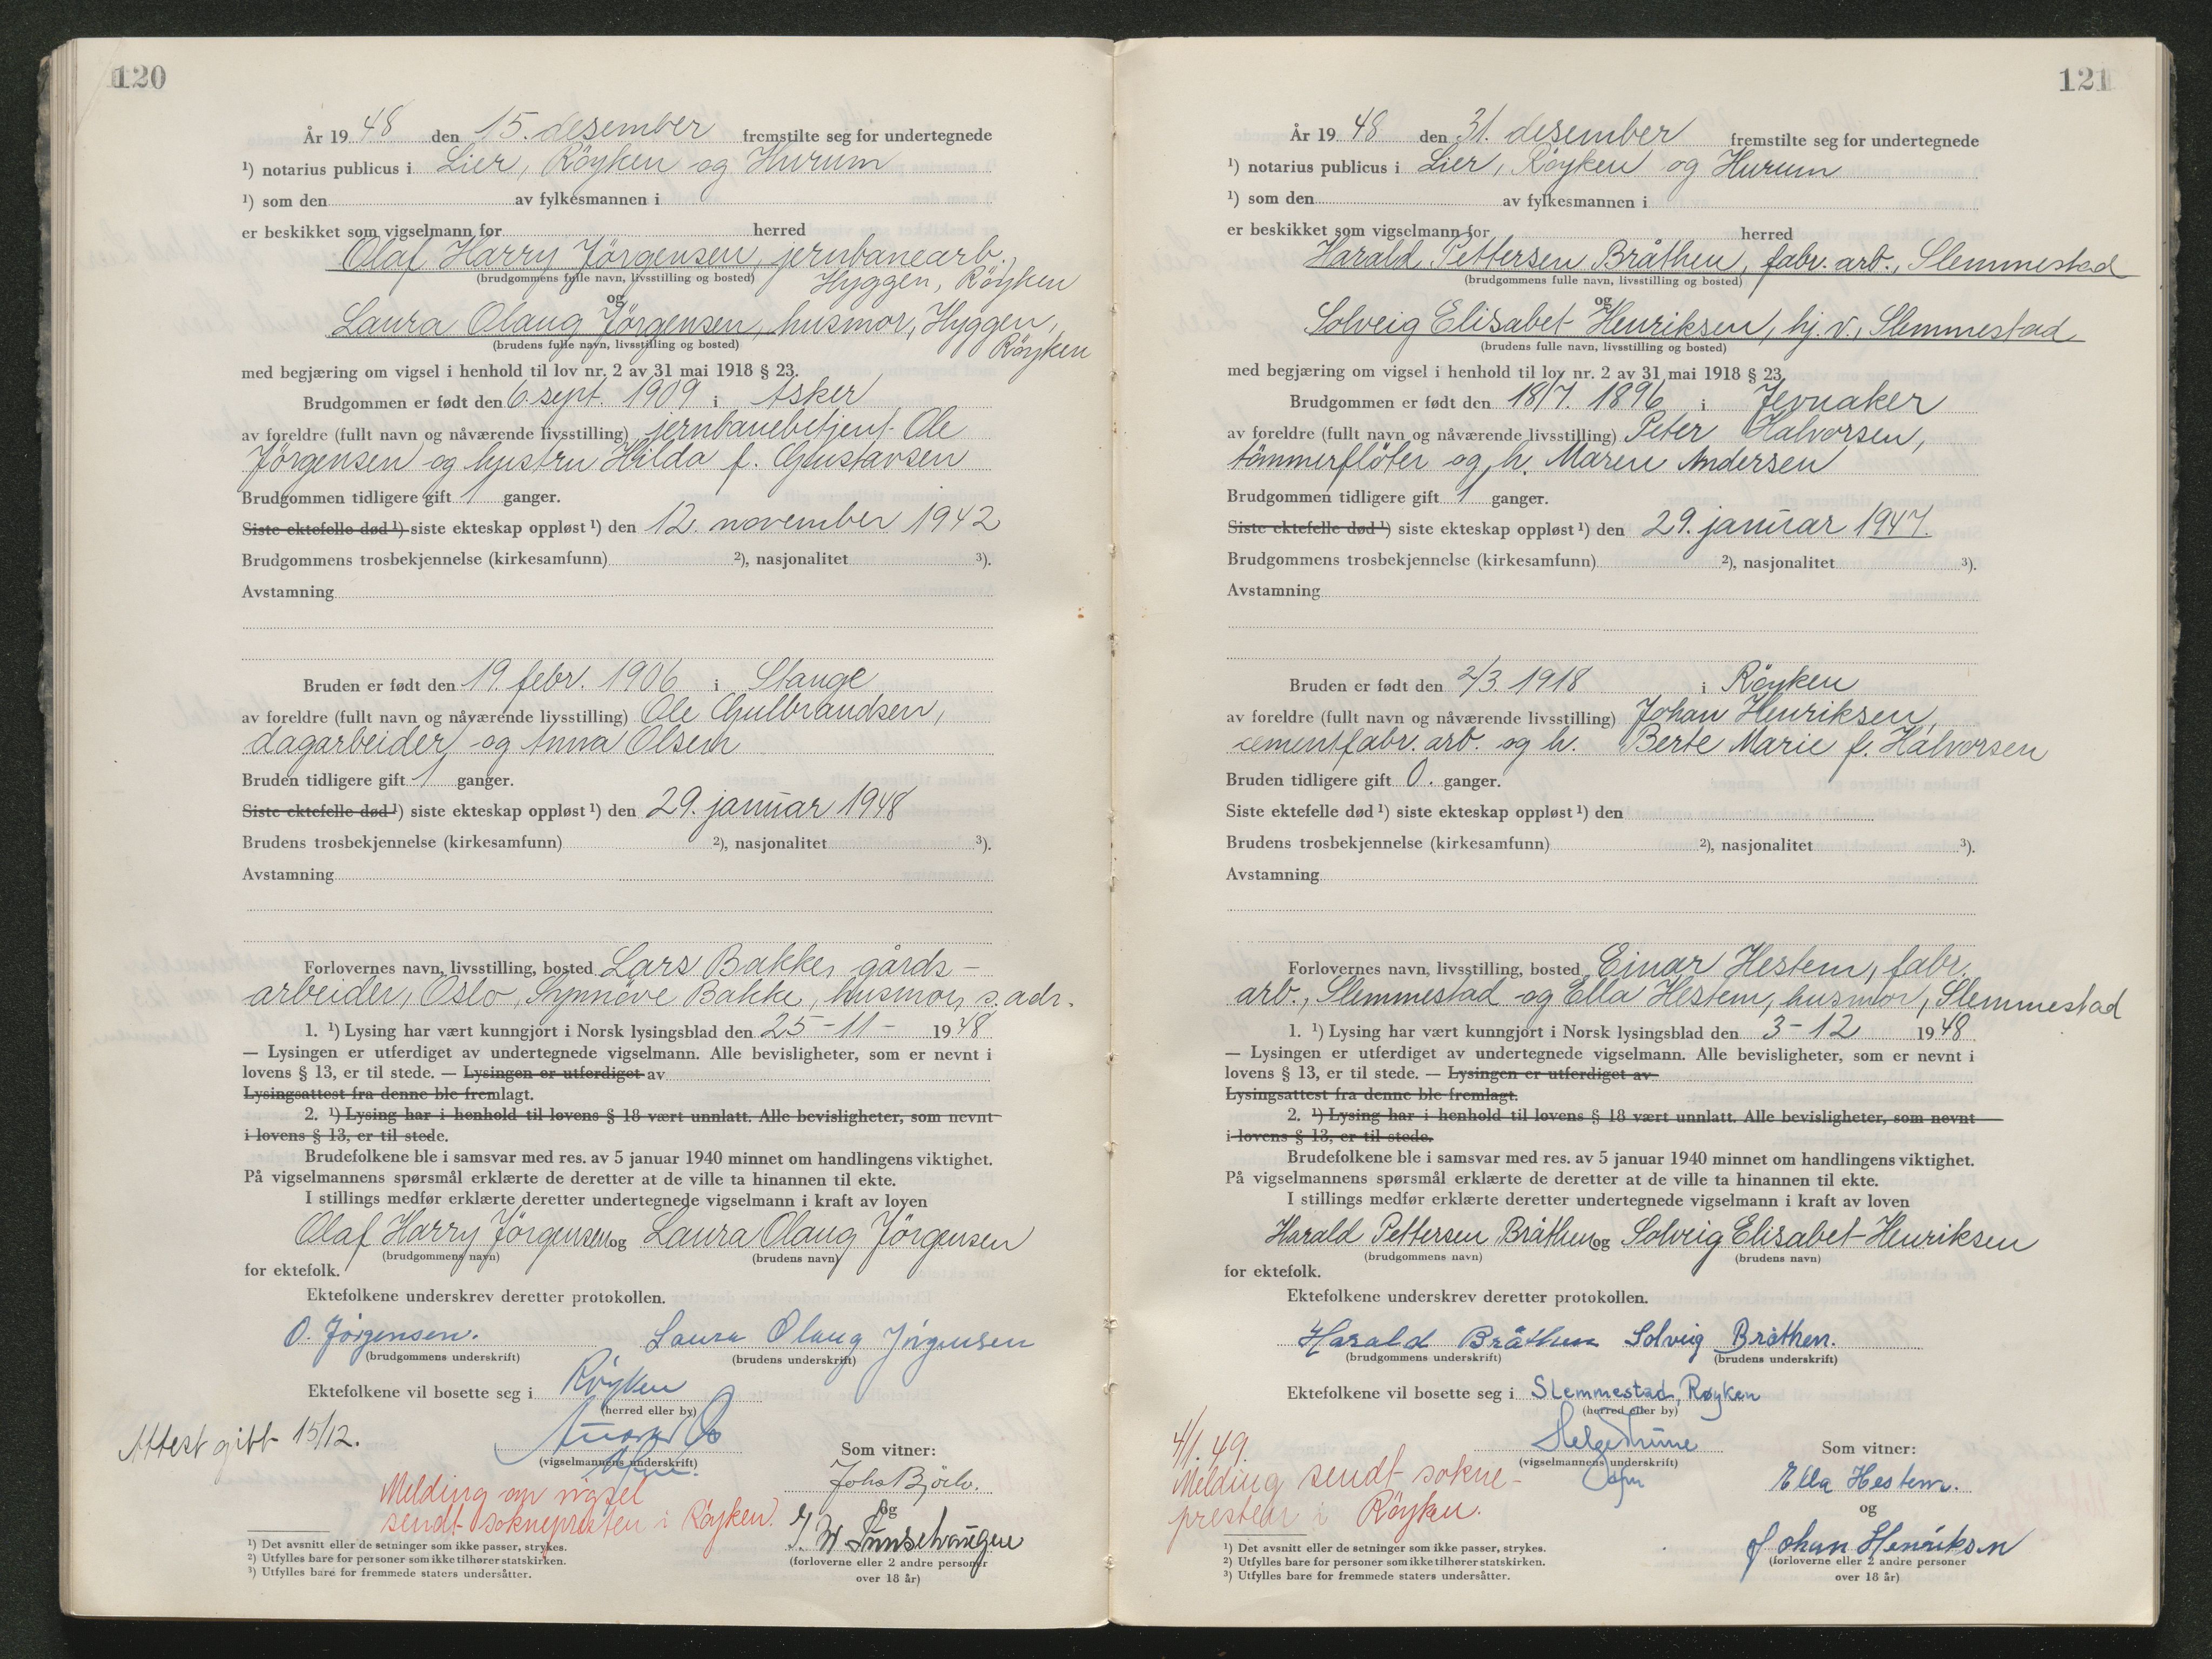 120
År 1948 den 15. desember fremstilte seg for undertegnede
¹) notarius publicus i Lier, Röyken og Hurum
¹) som den av fylkesmannen i
er beskikket som vigselmann for herred
Olaf Harry Jörgensen, jernbanearb.,
(brudgommens fulle navn, livsstilling og bosted) Hyggen, Röyken
og
Laura Olaug Jörgensen, husmor, Hyggen,
(brudens fulle navn, livsstilling og bosted) Röyken
med begjæring om vigsel i henhold til lov nr. 2 av 31 mai 1918 § 23.
Brudgommen er født den 6. sept. 1909 i Asker
av foreldre (fullt navn og nåværende livsstilling) jernbanebetjent Ole
Jörgensen og hustru Hilda f. Gustavsen
Brudgommen tidligere gift 1 ganger.
Siste ektefelle død ¹) siste ekteskap oppløst ¹) den 12. november 1942
Brudgommens trosbekjennelse (kirkesamfunn) ²), nasjonalitet ³).
Avstamning
Bruden er født den 19. febr. 1906 i Stange
av foreldre (fullt navn og nåværende livsstilling) Ole Gulbrandsen,
dagarbeider og Anna Olsen
Bruden tidligere gift 1 ganger.
Siste ektefelle død ¹) siste ekteskap oppløst ¹) den 29. januar 1948
Brudens trosbekjennelse (kirkesamfunn) ²), nasjonalitet ³).
Avstamning
Forlovernes navn, livsstilling, bosted Lars Bakke, gårds-
arbeider, Oslo, Synnöve Bakke, husmor, s. adr.
1. ¹) Lysing har vært kunngjort i Norsk lysingsblad den 25-11- 1948
— Lysingen er utferdiget av undertegnede vigselmann. Alle bevisligheter, som er nevnt i
lovens § 13, er til stede. — Lysingen er utferdiget av
Lysingsattest fra denne ble fremlagt.
2. ¹) Lysing har i henhold til lovens § 18 vært unnlatt. Alle bevisligheter, som nevnt
i lovens § 13, er til stede.
Brudefolkene ble i samsvar med res. av 5 januar 1940 minnet om handlingens viktighet.
På vigselmannens spørsmål erklærte de deretter at de ville ta hinannen til ekte.
I stillings medfør erklærte deretter undertegnede vigselmann i kraft av loven
Olaf Harry Jörgensen og Laura Olaug Jörgensen
(brudgommens navn) (brudens navn)
for ektefolk.
Ektefolkene underskrev deretter protokollen.
O. Jörgensen. Laura Olaug Jörgensen
(brudgommens underskrift) (brudens underskrift)
Ektefolkene vil bosette seg i Röyken
(herred eller by)
Attest gitt 15/12.
(vigselmannens underskrift)
Som vitner:
Melding om vigsel
sendt soknepresten i Røyken.
og
(forloverne eller 2 andre personer
over 18 år)
¹) Det avsnitt eller de setninger som ikke passer, strykes.
²) Utfylles bare for personer som ikke tilhører statskirken.
³) Utfylles bare for fremmede staters undersåtter.
121
År 1948 den 31. desember fremstilte seg for undertegnede
¹) notarius publicus i Lier, Röyken og Hurum
¹) som den av fylkesmannen i
er beskikket som vigselmann for herred
Harald Pettersen Bråthen, fabr. arb., Slemmestad
(brudgommens fulle navn, livsstilling og bosted)
og
Solveig Elisabet Henriksen, hj. v., Slemmestad
(brudens fulle navn, livsstilling og bosted)
med begjæring om vigsel i henhold til lov nr. 2 av 31 mai 1918 § 23.
Brudgommen er født den 18/7. 1896 i Jevnaker
av foreldre (fullt navn og nåværende livsstilling) Peter Halvorsen,
tömmerflöter og h. Maren Andersen
Brudgommen tidligere gift 1 ganger.
Siste ektefelle død ¹) siste ekteskap oppløst ¹) den 29. januar 1947.
Brudgommens trosbekjennelse (kirkesamfunn) ²), nasjonalitet ³).
Avstamning
Bruden er født den 2/3. 1918 i Röyken
av foreldre (fullt navn og nåværende livsstilling) Johan Henriksen,
cementfabr. arb. og h. Berte Marie f. Halvorsen
Bruden tidligere gift 0. ganger.
Siste ektefelle død ¹) siste ekteskap oppløst ¹) den
Brudens trosbekjennelse (kirkesamfunn) ²), nasjonalitet ³).
Avstamning
Forlovernes navn, livsstilling, bosted Einar Hestem, fabr.
arb., Slemmestad og Ella Hestem, husmor, Slemmestad
1. ¹) Lysing har vært kunngjort i Norsk lysingsblad den 3-12 1948
— Lysingen er utferdiget av undertegnede vigselmann. Alle bevisligheter, som er nevnt i
lovens § 13, er til stede. — Lysingen er utferdiget av
Lysingsattest fra denne ble fremlagt.
2. ¹) Lysing har i henhold til lovens § 18 vært unnlatt. Alle bevisligheter, som nevnt
i lovens § 13, er til stede.
Brudefolkene ble i samsvar med res. av 5 januar 1940 minnet om handlingens viktighet.
På vigselmannens spørsmål erklærte de deretter at de ville ta hinannen til ekte.
I stillings medfør erklærte deretter undertegnede vigselmann i kraft av loven
Harald Pettersen Bråthen og Solveig Elisabet Henriksen
(brudgommens navn) (brudens navn)
for ektefolk.
Ektefolkene underskrev deretter protokollen.
Harald Bråthen Solveig Bråthen.
(brudgommens underskrift) (brudens underskrift)
Ektefolkene vil bosette seg i Slemmestad, Røyken
(herred eller by)
4/1. 49.
Helge
(vigselmannens underskrift)
Som vitner:
Melding sendt sokne-
presten i Röyken.
Ella Hestem.
og
Johan Henriksen
(forloverne eller 2 andre personer
over 18 år)
¹) Det avsnitt eller de setninger som ikke passer, strykes.
²) Utfylles bare for personer som ikke tilhører statskirken.
³) Utfylles bare for fremmede staters undersåtter.